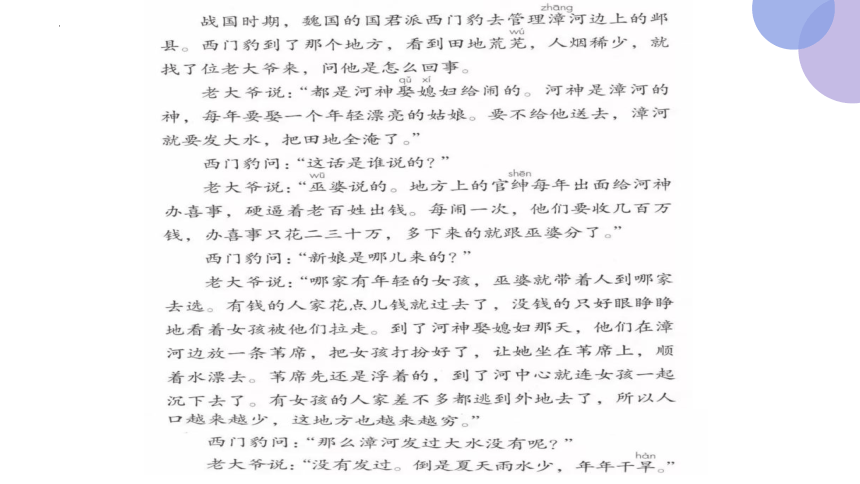 zhāng
战国时期，魏国的国君派西门豹去管理漳河边上的邺
wú
县。西门豹到了那个地方，看到田地荒芜，人烟稀少，就
找了位老大爷来，问他是怎么回事。
qǔ xí
老大爷说：“都是河神娶媳妇给闹的。河神是漳河的
神，每年要娶一个年轻漂亮的姑娘。要不给他送去，漳河
就要发大水，把田地全淹了。”
西门豹问：“这话是谁说的？”
wū shēn
老大爷说：“巫婆说的。地方上的官绅每年出面给河神
办喜事，硬逼着老百姓出钱。每闹一次，他们要收几百万
钱，办喜事只花二三十万，多下来的就跟巫婆分了。”
西门豹问：“新娘是哪儿来的？”
老大爷说：“哪家有年轻的女孩，巫婆就带着人到哪家
去选。有钱的人家花点儿钱就过去了，没钱的只好眼睁睁
地看着女孩被他们拉走。到了河神娶媳妇那天，他们在漳
河边放一条苇席，把女孩打扮好了，让她坐在苇席上，顺
着水漂去。苇席先还是浮着的，到了河中心就连女孩一起
沉下去了。有女孩的人家差不多都逃到外地去了，所以人
口越来越少，这地方也越来越穷。”
西门豹问：“那么漳河发过大水没有呢？”
hàn
老大爷说：“没有发过。倒是夏天雨水少，年年干旱。”